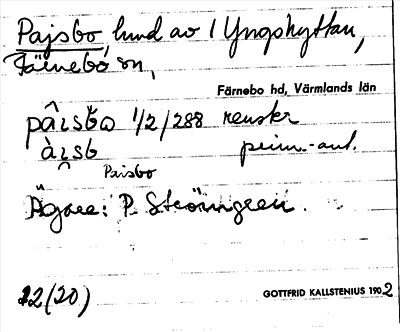 Pajsbo, lund av 1 Yngshyttan,
Färnebo sn,
Färnebo hd, Värmlands län
1/2/288 renskr
prim.-ant.
Paisbo
Ägare: P. Strömgren.
12(20)
GOTTFRID KALLSTENIUS 1902